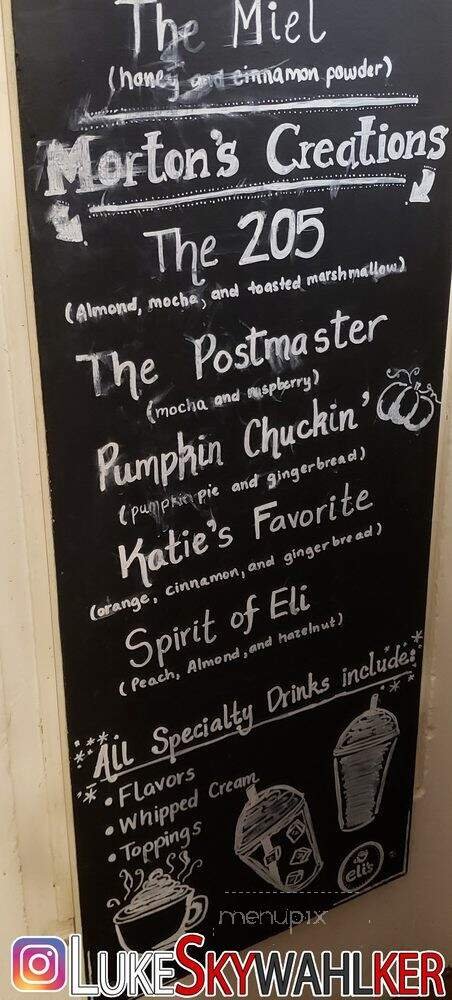 The Miel
(honey and cinnamon powder)
Morton's Creations
The 205
(Almond, mocha, and toasted marshmallow)
The Postmaster
(mocha and raspberry)
Pumpkin Chuckin'
(pumpkin pie and gingerbread)
Katie's Favorite
(orange, cinnamon, and gingerbread)
Spirit of Eli
(Peach, Almond, and hazelnut)
All Specialty Drinks include:
• Flavors
• Whipped Cream
• Toppings
eli's
menupix
LUKESKYWAHLKER